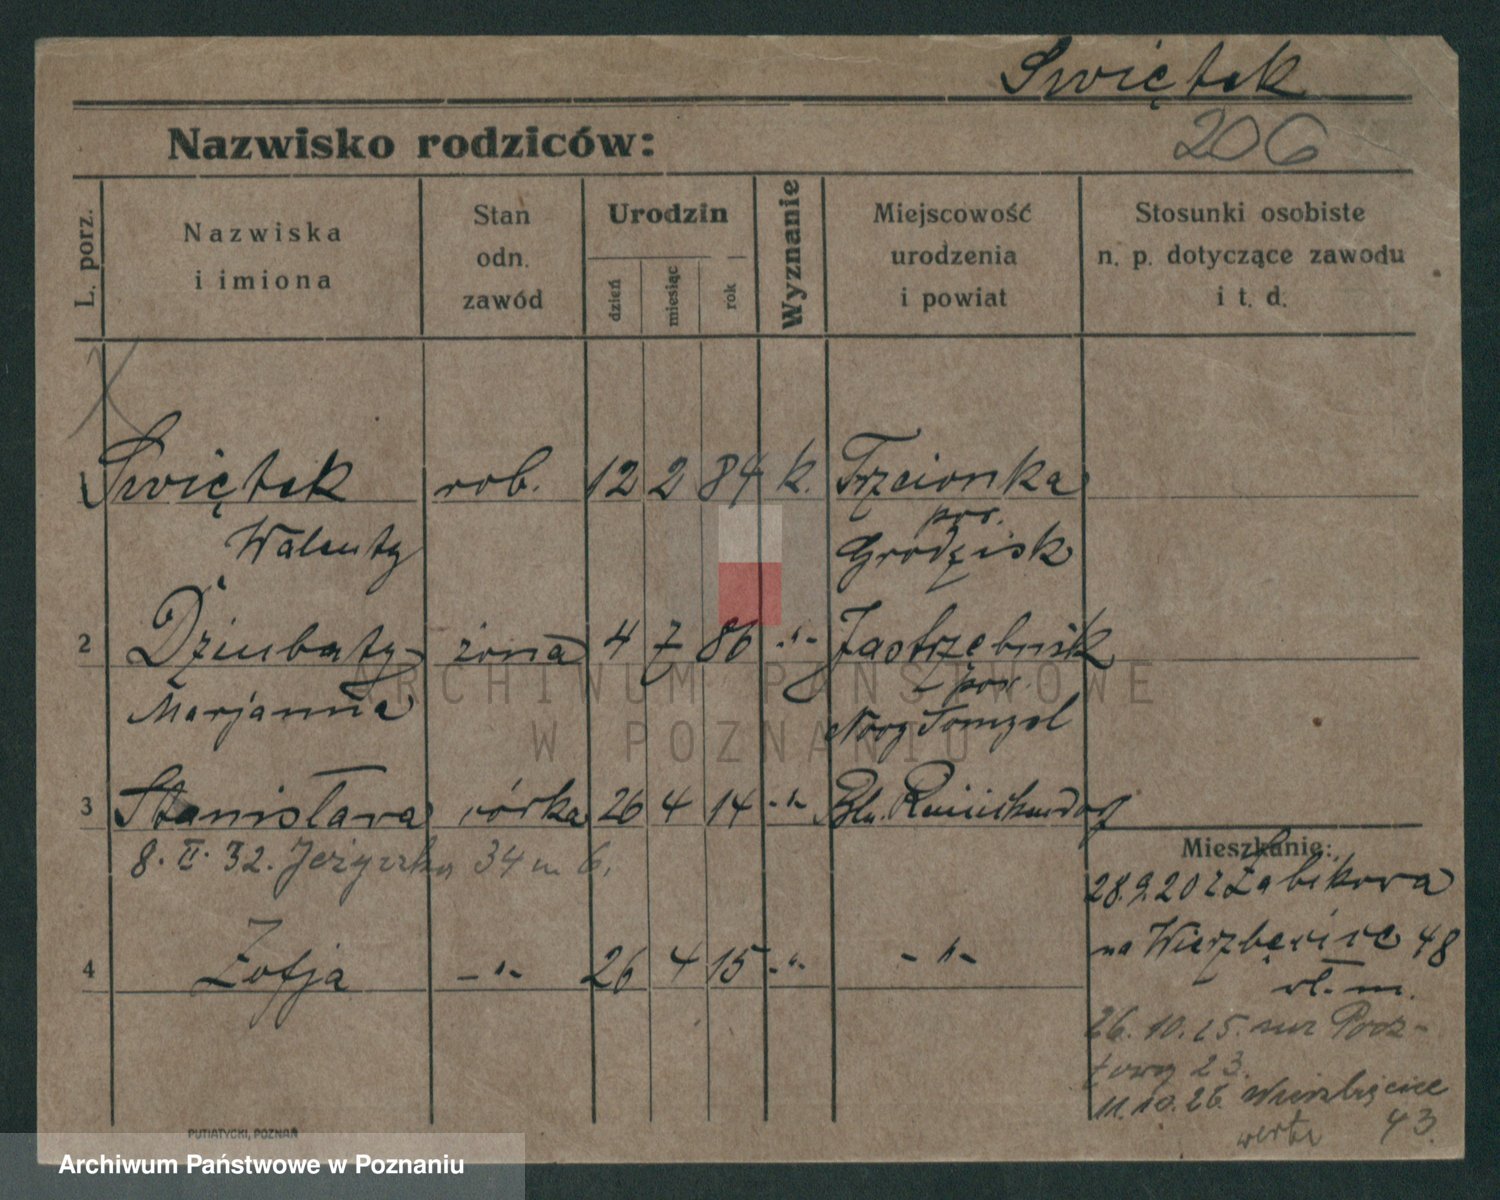 Swiętek
206
Nazwisko rodziców:
L. porz.
Nazwiska
i imiona
Stan
odn.
zawód
Urodzin
dzień
miesiąc
rok
Wyznanie
Miejscowość
urodzenia
i powiat
Stosunki osobiste
n. p. dotyczące zawodu
i t. d.
1 Swiętek rob. 12 2 84 k. Trzcionka
Walenty pow. Grodzisk
2 Dziubaty żona 4 7 86 -"- Jastrzębsik
Marjanna pow.
Nowy Tomysl
3 Stanisława córka 26 4 14 -"- Bln. Reinickendorf
8. II. 32. Jeżycka 34 m 6.
4 Zofja -"- 26 4 15 -"- -"-
Mieszkanie:
28.9.20 z Żabikowa
na Wierzbięcice 48
wł. m.
26. 10. 25. Pocz-
towa 23.
11.10.26. Wierzbięcice
43.
PUTIATYCKI, POZNAŃ
ARCHIWUM PAŃSTWOWE
W POZNANIU
Archiwum Państwowe w Poznaniu